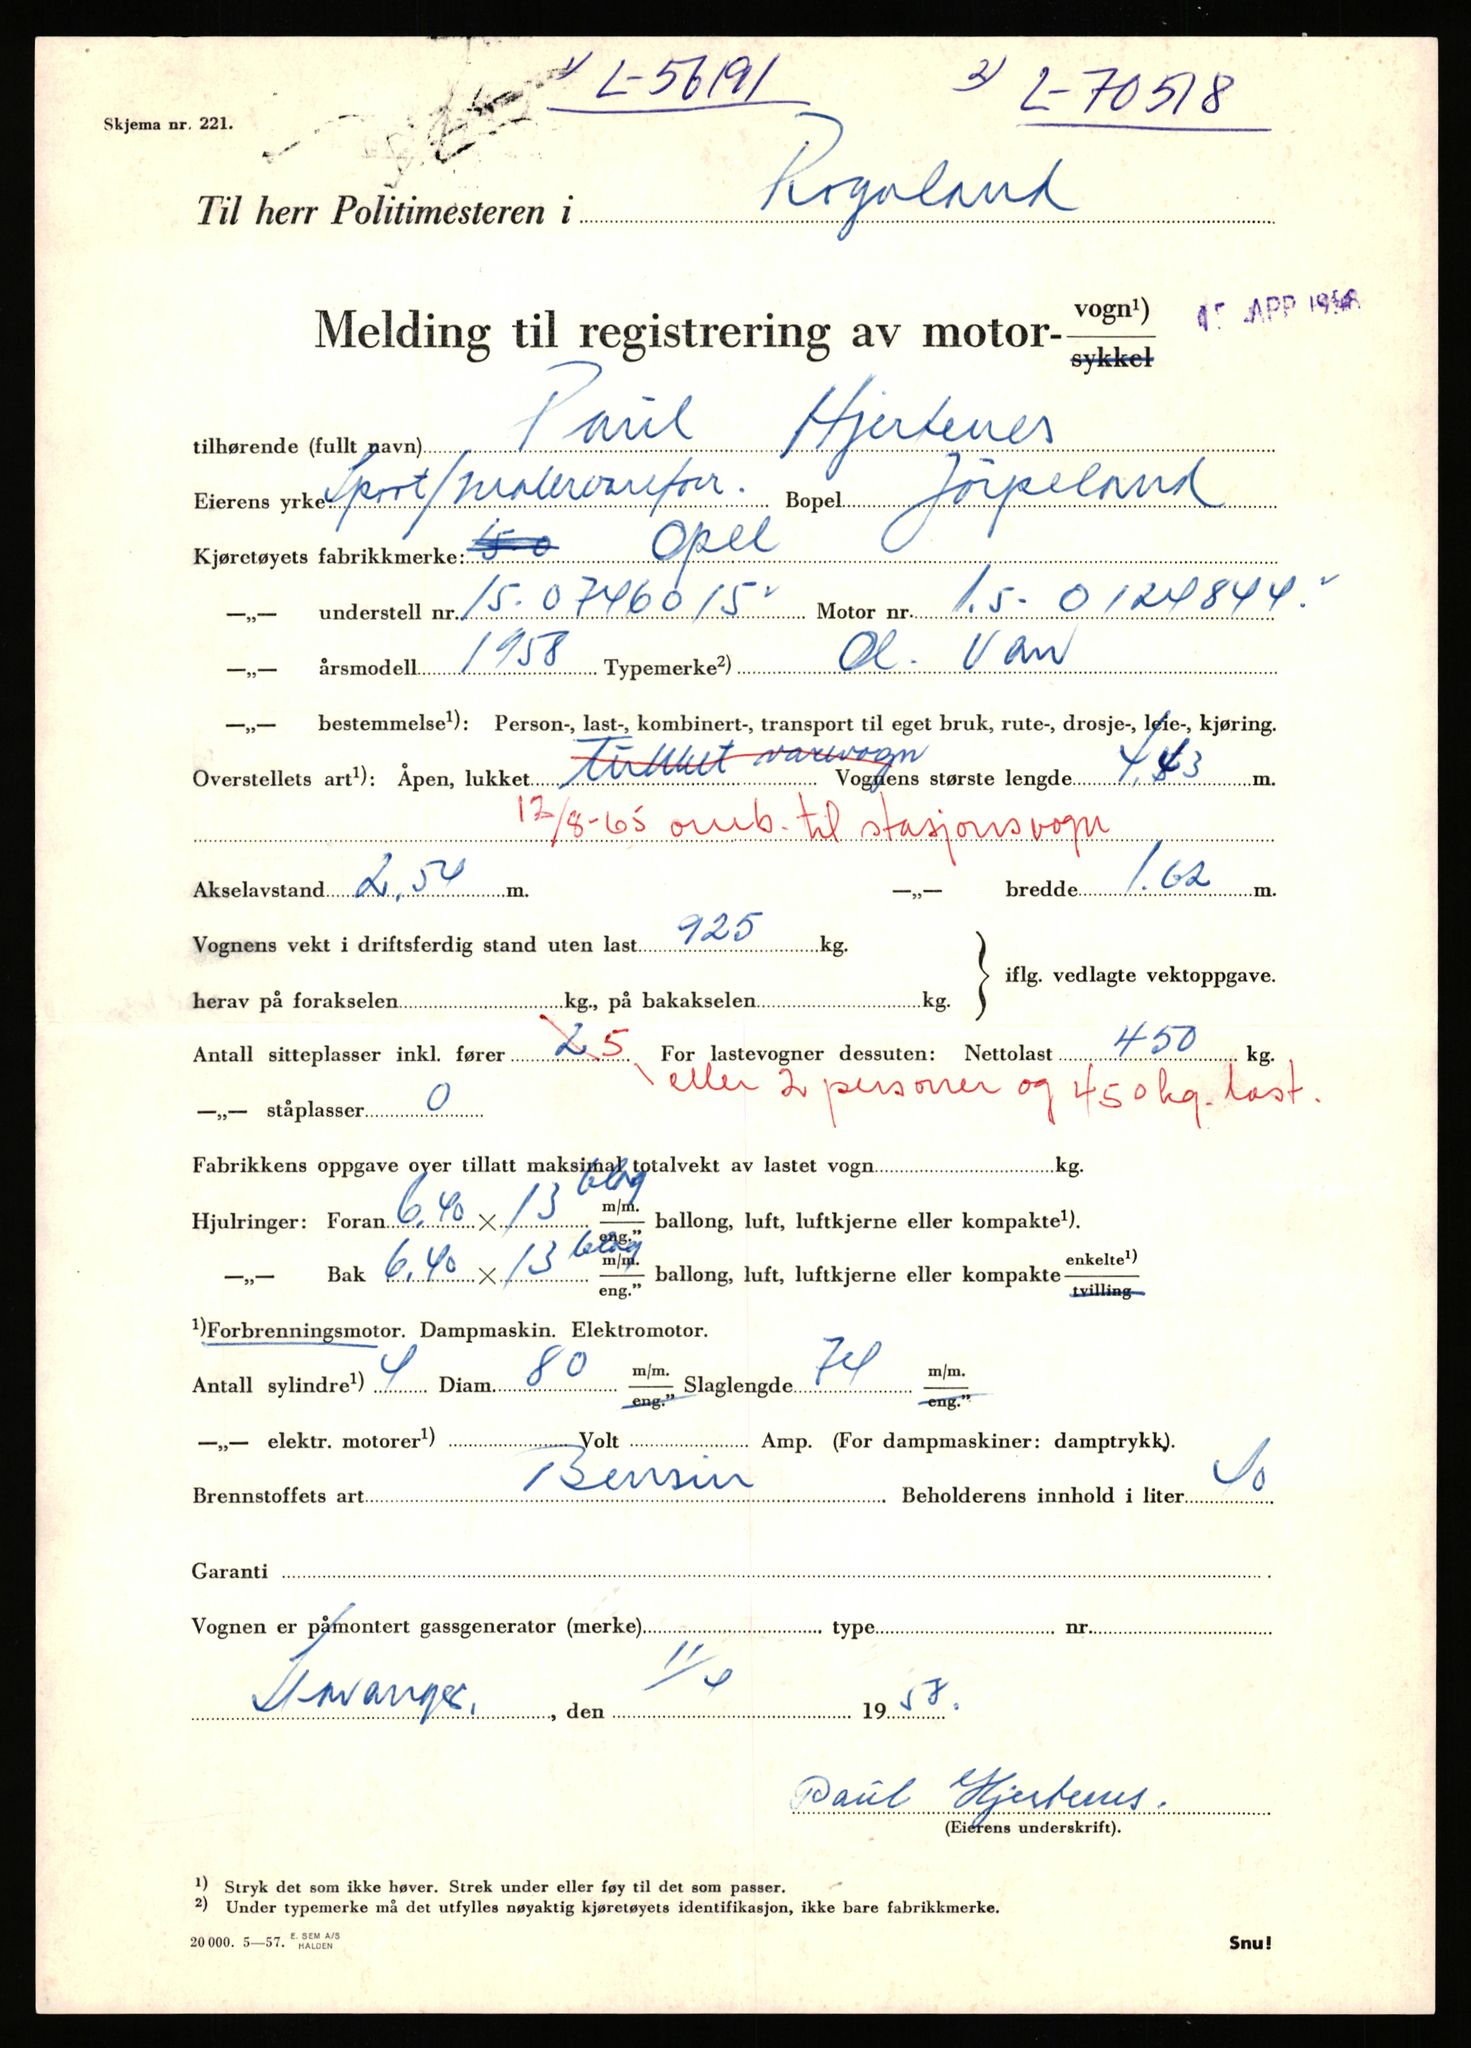 1) L-56191 2) L-70518
Skjema nr. 221.
Til herr Politimesteren i Rogaland
Melding til registrering av motor- vogn¹) sykkel
APR 1958
tilhørende (fullt navn) Paul Hjertenes
Eierens yrke Sport/malervarefor. Bopel Jörpeland
Kjøretøyets fabrikkmerke: 15-0 Opel
—„— understell nr. 15-0746015 Motor nr. 1.5-0124844.
—„— årsmodell 1958 Typemerke²) Ol. Van
—„— bestemmelse¹): Person-, last-, kombinert-, transport til eget bruk, rute-, drosje-, leie-, kjøring.
Overstellets art¹): Åpen, lukket varevogn Vognens største lengde 4,43 m.
12/8-65 omb. til stasjonsvogn
Akselavstand 2,54 m. —„— bredde 1.62 m.
Vognens vekt i driftsferdig stand uten last 925 kg.
iflg. vedlagte vektoppgave.
herav på forakselen kg., på bakakselen kg.
Antall sitteplasser inkl. fører 2 5 For lastevogner dessuten: Nettolast 450 kg.
eller 2 personer og 450 kg. last.
—„— ståplasser 0
Fabrikkens oppgave over tillatt maksimal totalvekt av lastet vogn kg.
Hjulringer: Foran 6,40 × 13 m/m. eng.” ballong, luft, luftkjerne eller kompakte¹).
—„— Bak 6,40 × 13 m/m. eng.” ballong, luft, luftkjerne eller kompakte enkelte¹) tvilling
¹)Forbrenningsmotor. Dampmaskin. Elektromotor.
Antall sylindre¹) 4 Diam. 80 m/m. eng.” Slaglengde 74 m/m. eng.”
—„— elektr. motorer¹) Volt Amp. (For dampmaskiner: damptrykk).
Brennstoffets art Bensin Beholderens innhold i liter 40
Garanti
Vognen er påmontert gassgenerator (merke) type nr.
Stavanger, , den 11/4 1958.
Paul Hjertenes.
(Eierens underskrift).
¹) Stryk det som ikke høver. Strek under eller føy til det som passer.
²) Under typemerke må det utfylles nøyaktig kjøretøyets identifikasjon, ikke bare fabrikkmerke.
20 000. 5—57. E. SEM A/S HALDEN
Snu!